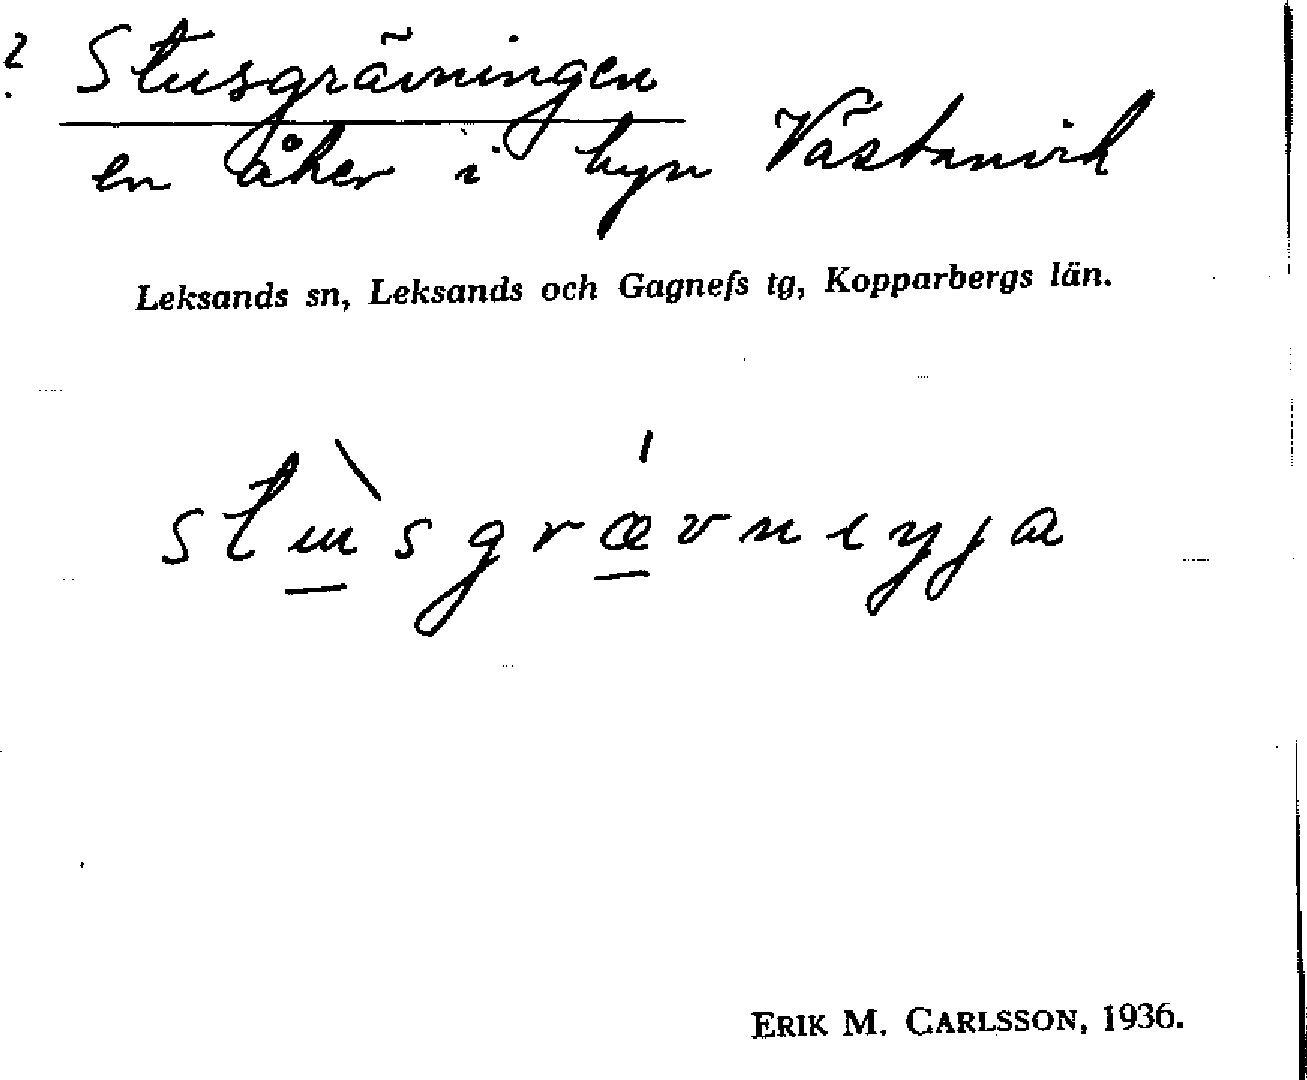 ? Stusgrävningen
en åker i byn Västanvik
Leksands sn, Leksands och Gagnefs tg, Kopparbergs län.
stɯ̲̀sgrǽ̲vnıŋja
ERIK M. CARLSSON, 1936.